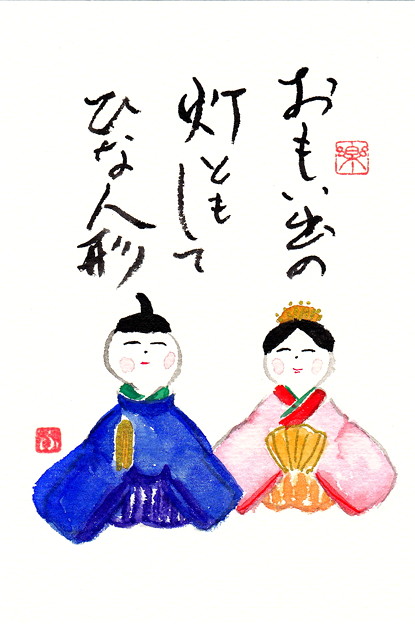 おもい出の
灯ともして
ひな人形
楽